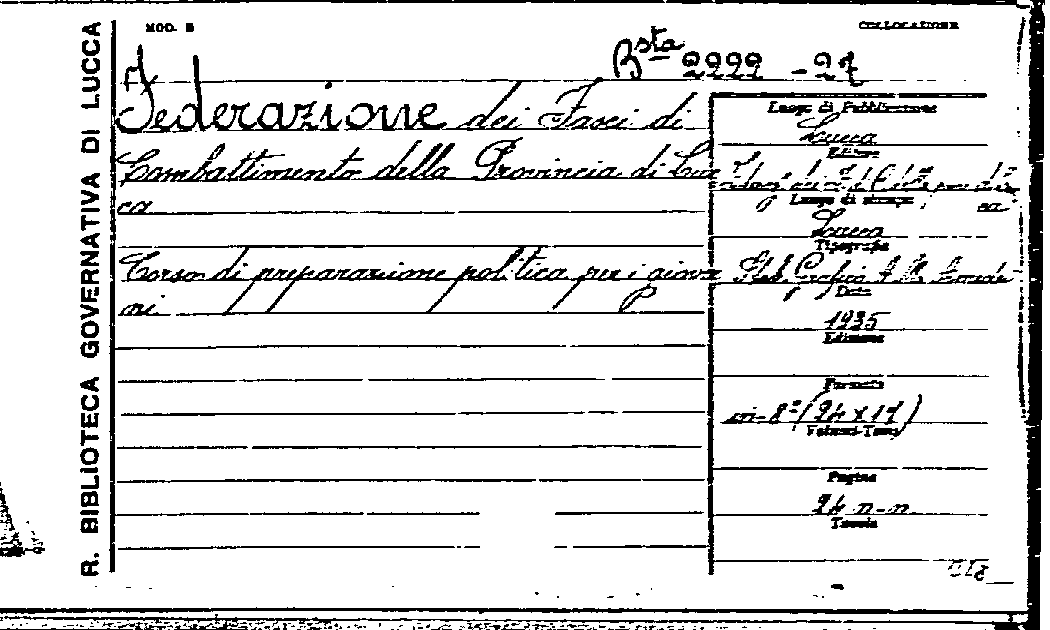 R. BIBLIOTECA GOVERNATIVA DI LUCCA
MOD. B
COLLOCAZIONE
Bsta 2222 - 27
Federazione dei Fasci di
Combattimento della Provincia di Luc
ca
Corso di preparazione politica per i giova
ni
Luogo di Pubblicazione
Lucca
Editore
Luogo di stampa
Lucca
Tipografia
Stab. Grafico A. M.
Data
1935
Edizione
Formato
in-8° (24 x 17)
Volumi-Tomi
Pagine
24 n-n.
Tavole